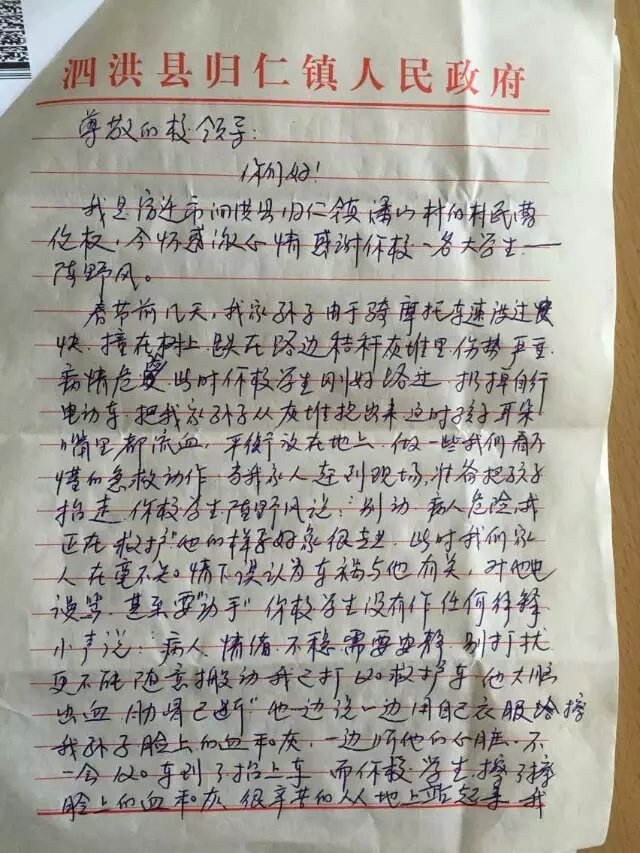 泗洪县归仁镇人民政府
尊敬的校领导：
你们好！
我是宿迁市泗洪县归仁镇潘山村的村民曹
佐权，今怀感激心情感谢你校一名大学生——
陈野风。
春节前几天，我家孙子由于骑摩托车速度过
快，撞在树上，跌在路边秸秆灰堆里伤势严重
病情危 此时你校学生刚好路过，扔掉自行
电动车，把我家孙子从灰堆抱出来这时孩子耳朵
嘴里都流血，平衡放在地上，做一些我们看不
懂的急救动作，当我家人赶到现场，准备把孩子
抬走，你校学生陈野风说：别动，病人危险，我
正在救护"他的样子好象很 此时我们家
人在毫不知情下误认为车祸与他有关，对他
谩骂，甚至要"动手"你校学生没有作任何
小声说：病人情绪不稳需要安静，别打扰
更不能随意搬动我已打120救护车，他大脑
出血，肋骨已断"他一边说一边用自己衣服给擦
我孙子脸上的血和灰，一边听他的心脏。不
一会120车到了抬上车，而你校学生，擦了擦
脸上的血和灰，很辛苦的从地上站起来，我